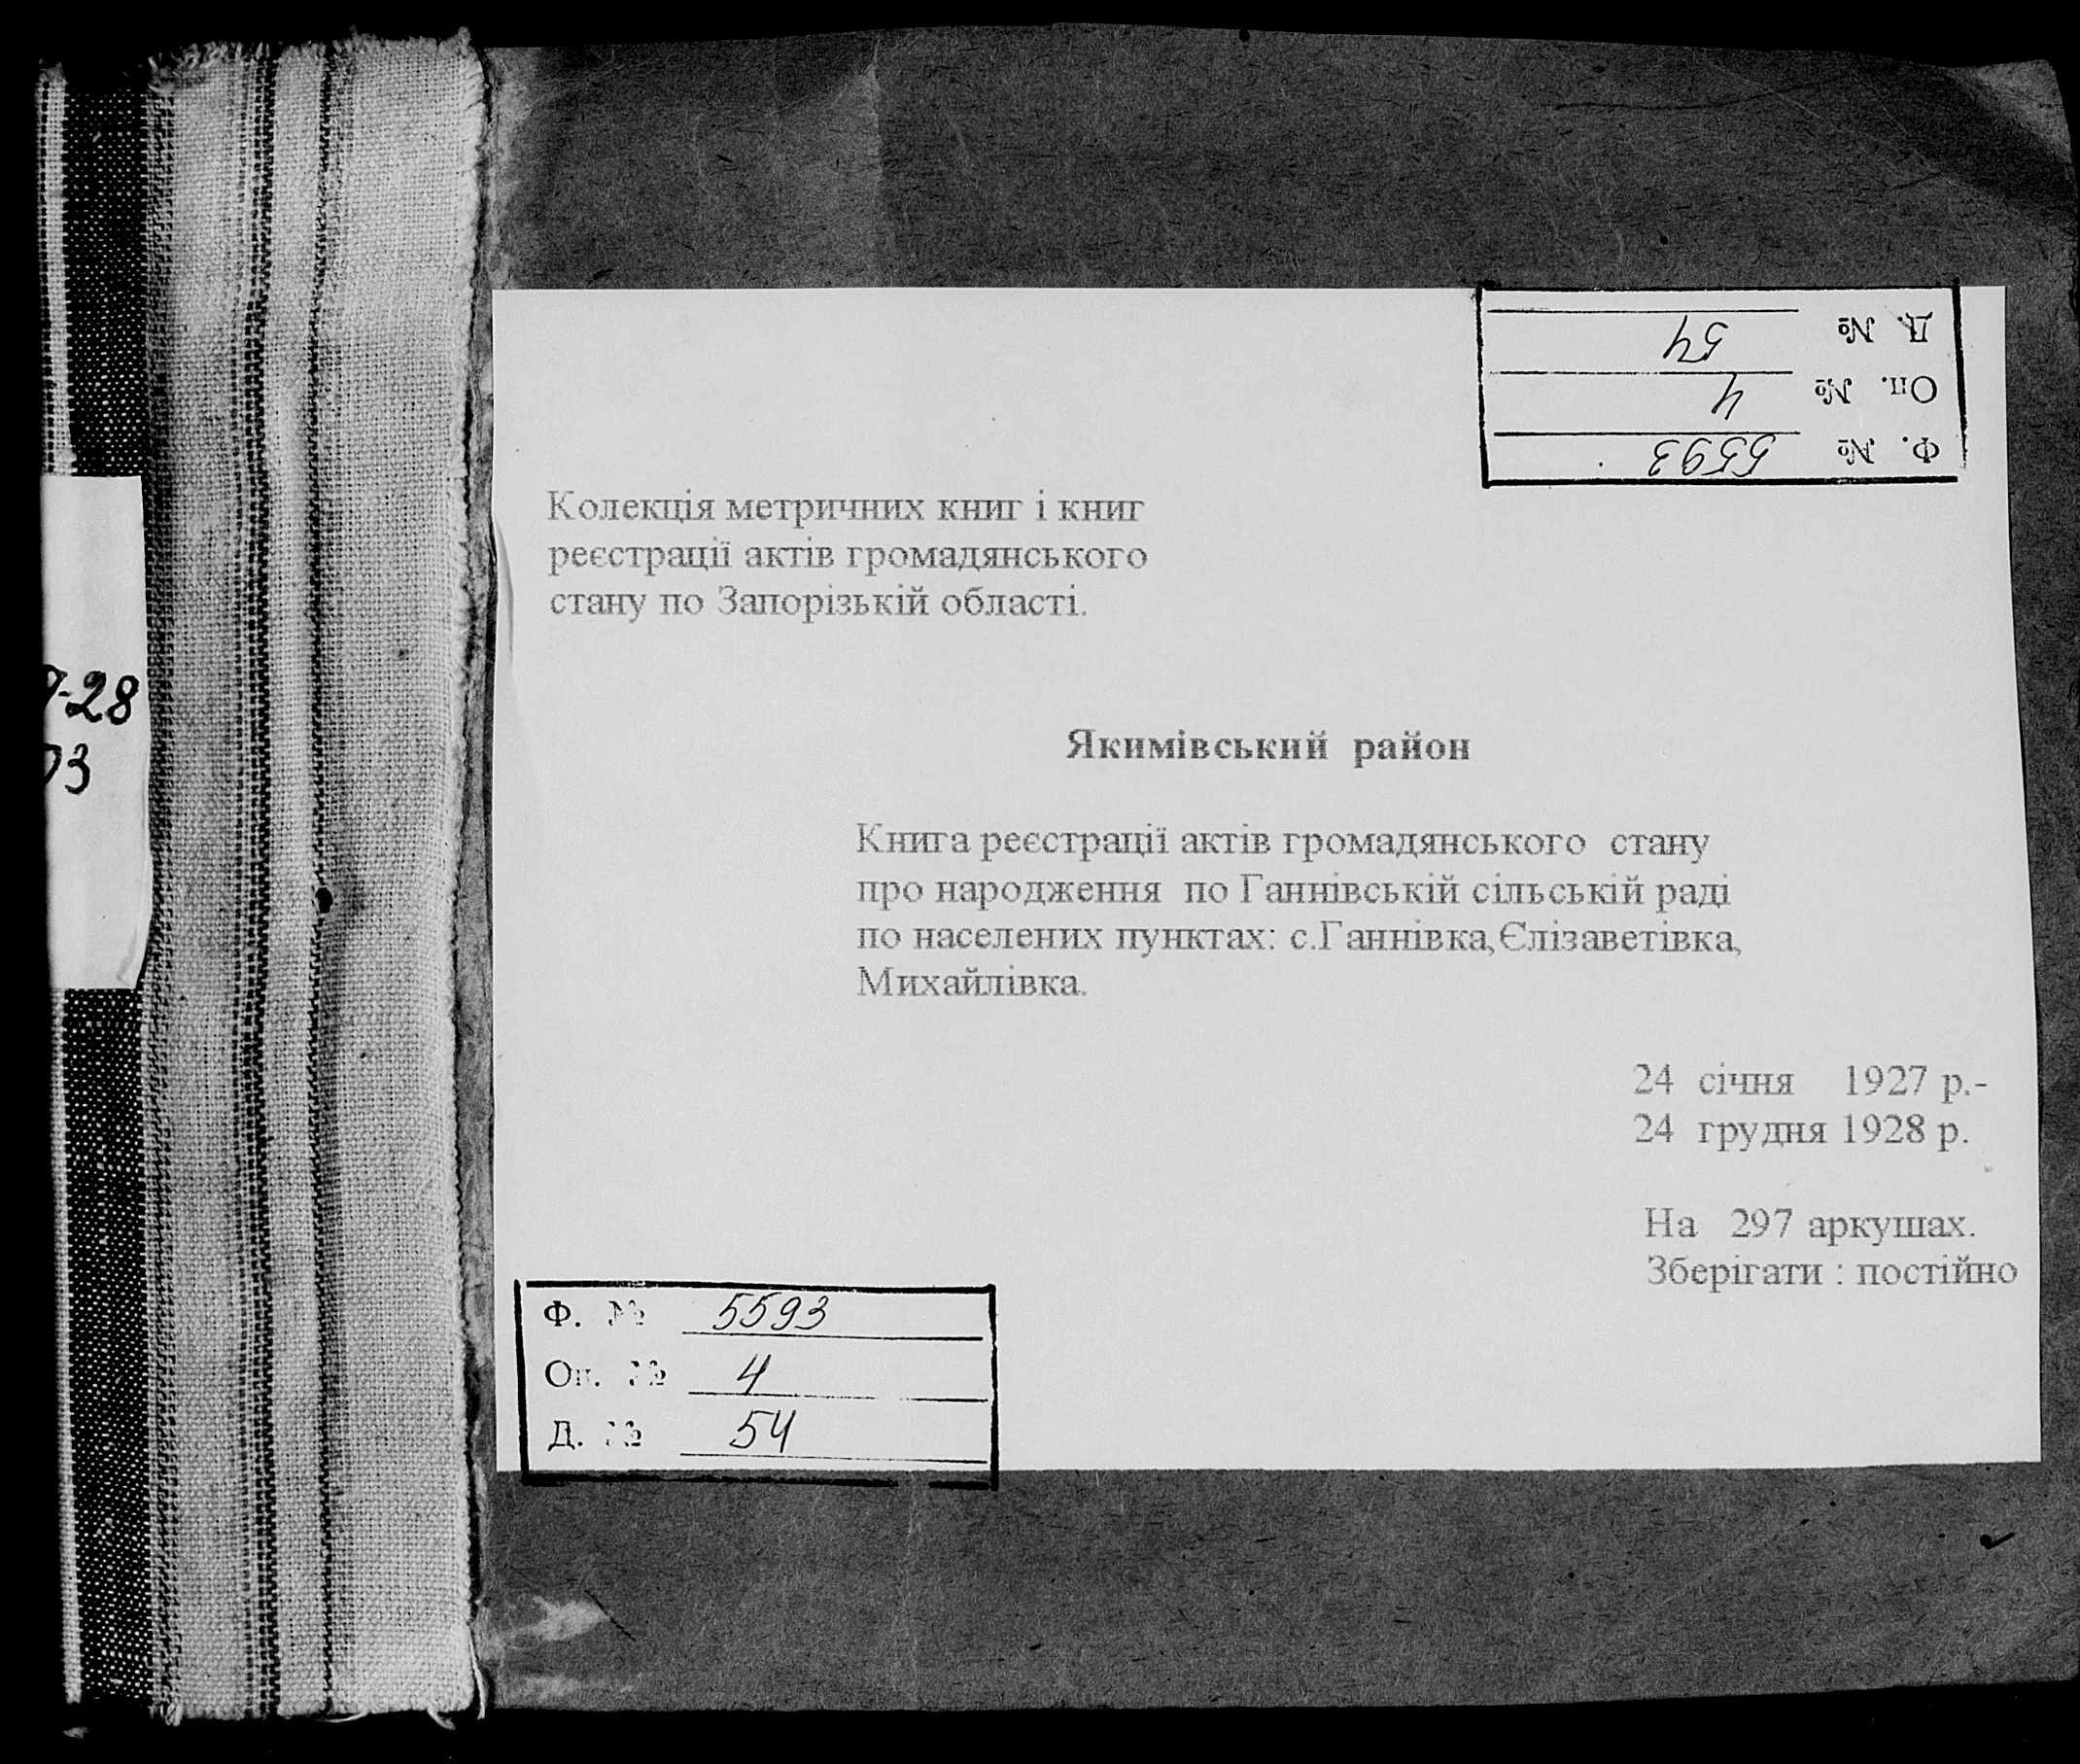 -28
3
Д. № 54
Оп. № 4
Ф. № 5593
Колекція метричних книг і книг
реєстрації актів громадянського
стану по Запорізькій області.
Якимівський район
Книга реєстрації актів громадянського стану
про народження по Ганнівській сільській раді
по населених пунктах: с.Ганнівка,Єлізаветівка,
Михайлівка.
24 січня 1927 р.-
24 грудня 1928 р.
На 297 аркушах.
Зберігати : постійно
Ф. № 5593
Оп. № 4
Д. № 54